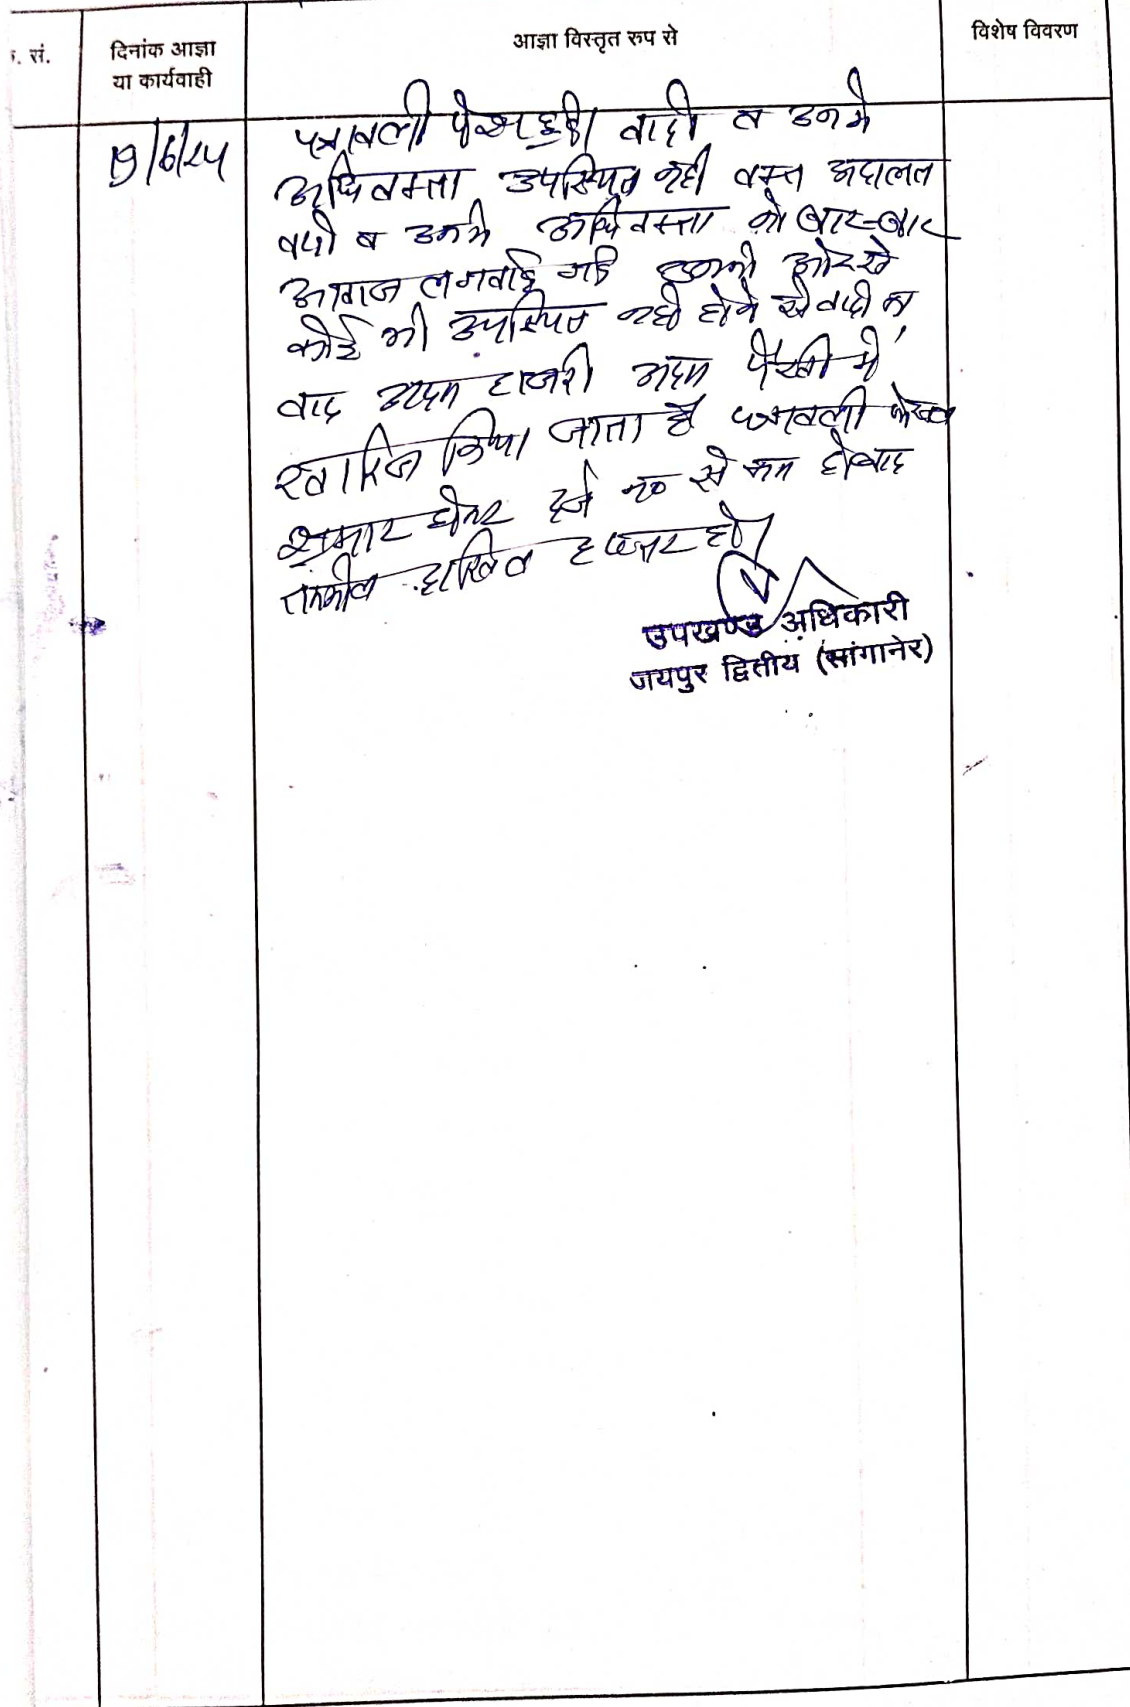 . सं.
दिनांक आज्ञा
या कार्यवाही
आज्ञा विस्तृत रुप से
विशेष विवरण
पत्रावली पेश हुई। वादी व उनके
अधिवक्ता उपस्थित नही वक्त अदालत
वादी व उनके अधिवक्ता को बार-बार
आवाज लगवाई गई इनकी ओर से
कोई भी उपस्थित नही होने से वादी का
वाद अदम हाजरी अदम पैरवी में
खारिज किया जाता है पत्रावली फैसल
शुमार होकर दर्ज न० से कम हो बाद
तकमील दाखिल दफ्तर हो।
उपखण्ड अधिकारी
जयपुर द्वितीय (सांगानेर)